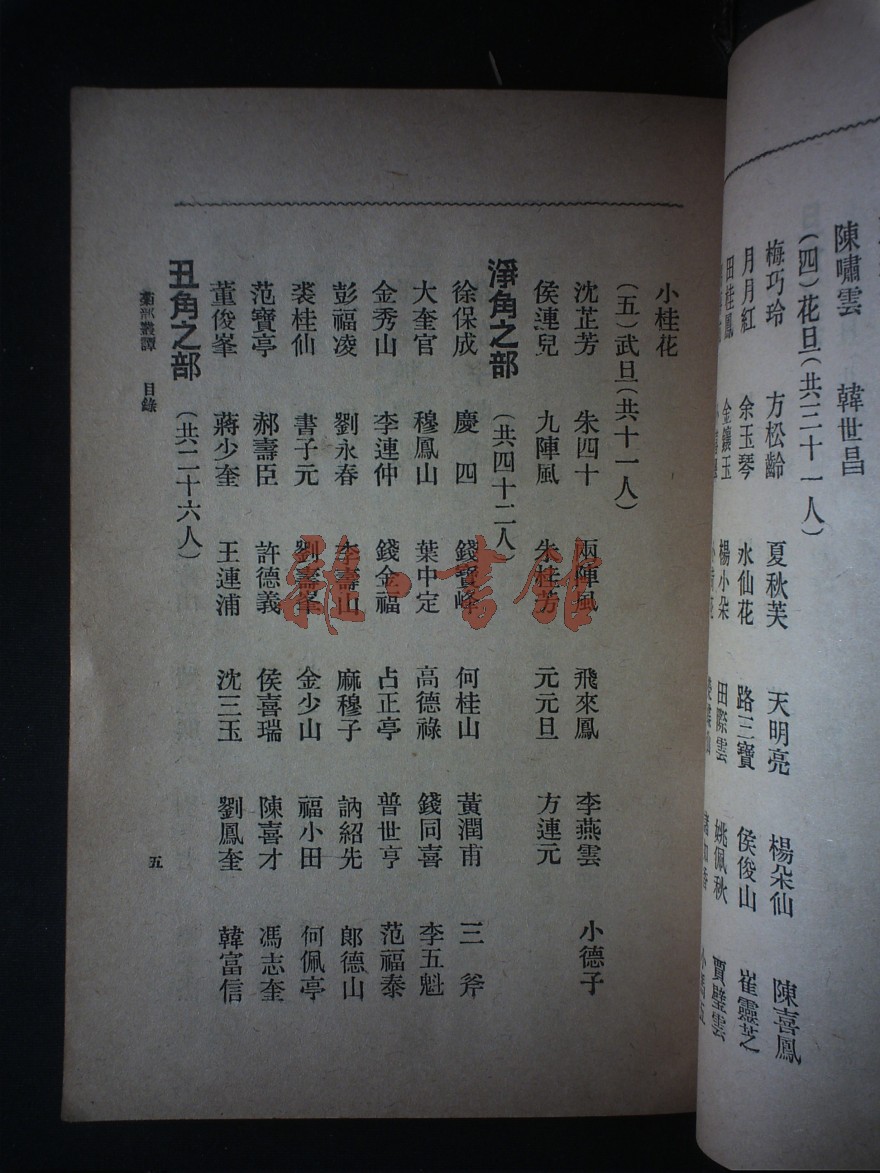 陳嘯雲 韓世昌
(四)花旦(共三十一人)
梅巧玲 方松齡 夏秋芙 天明亮 楊朵仙 陳喜鳳
月月紅 余玉琴 水仙花 路三寶 侯俊山 崔靈芝
田桂鳳 金鑲玉 楊小朵 田際雲 姚佩秋 賈璧雲
小桂花
(五)武旦(共十一人)
沈芷芳 朱四十 兩陣風 飛來鳳 李燕雲 小德子
侯連兒 九陣風 朱桂芳 元元旦 方連元
淨角之部 (共四十二人)
徐保成 慶四 錢寶峰 何桂山 黃潤甫 三斧
大奎官 穆鳳山 葉中定 高德祿 錢同喜 李五魁
金秀山 李連仲 錢金福 占正亭 普世亨 范福泰
彭福凌 劉永春 李壽山 麻穆子 訥紹先 郎德山
裘桂仙 書子元 劉壽峯 金少山 福小田 何佩亭
范寶亭 郝壽臣 許德義 侯喜瑞 陳喜才 馮志奎
董俊峯 蔣少奎 王連浦 沈三玉 劉鳳奎 韓富信
丑角之部 (共二十六人)
菊部叢譚 目錄 五
雜·書館